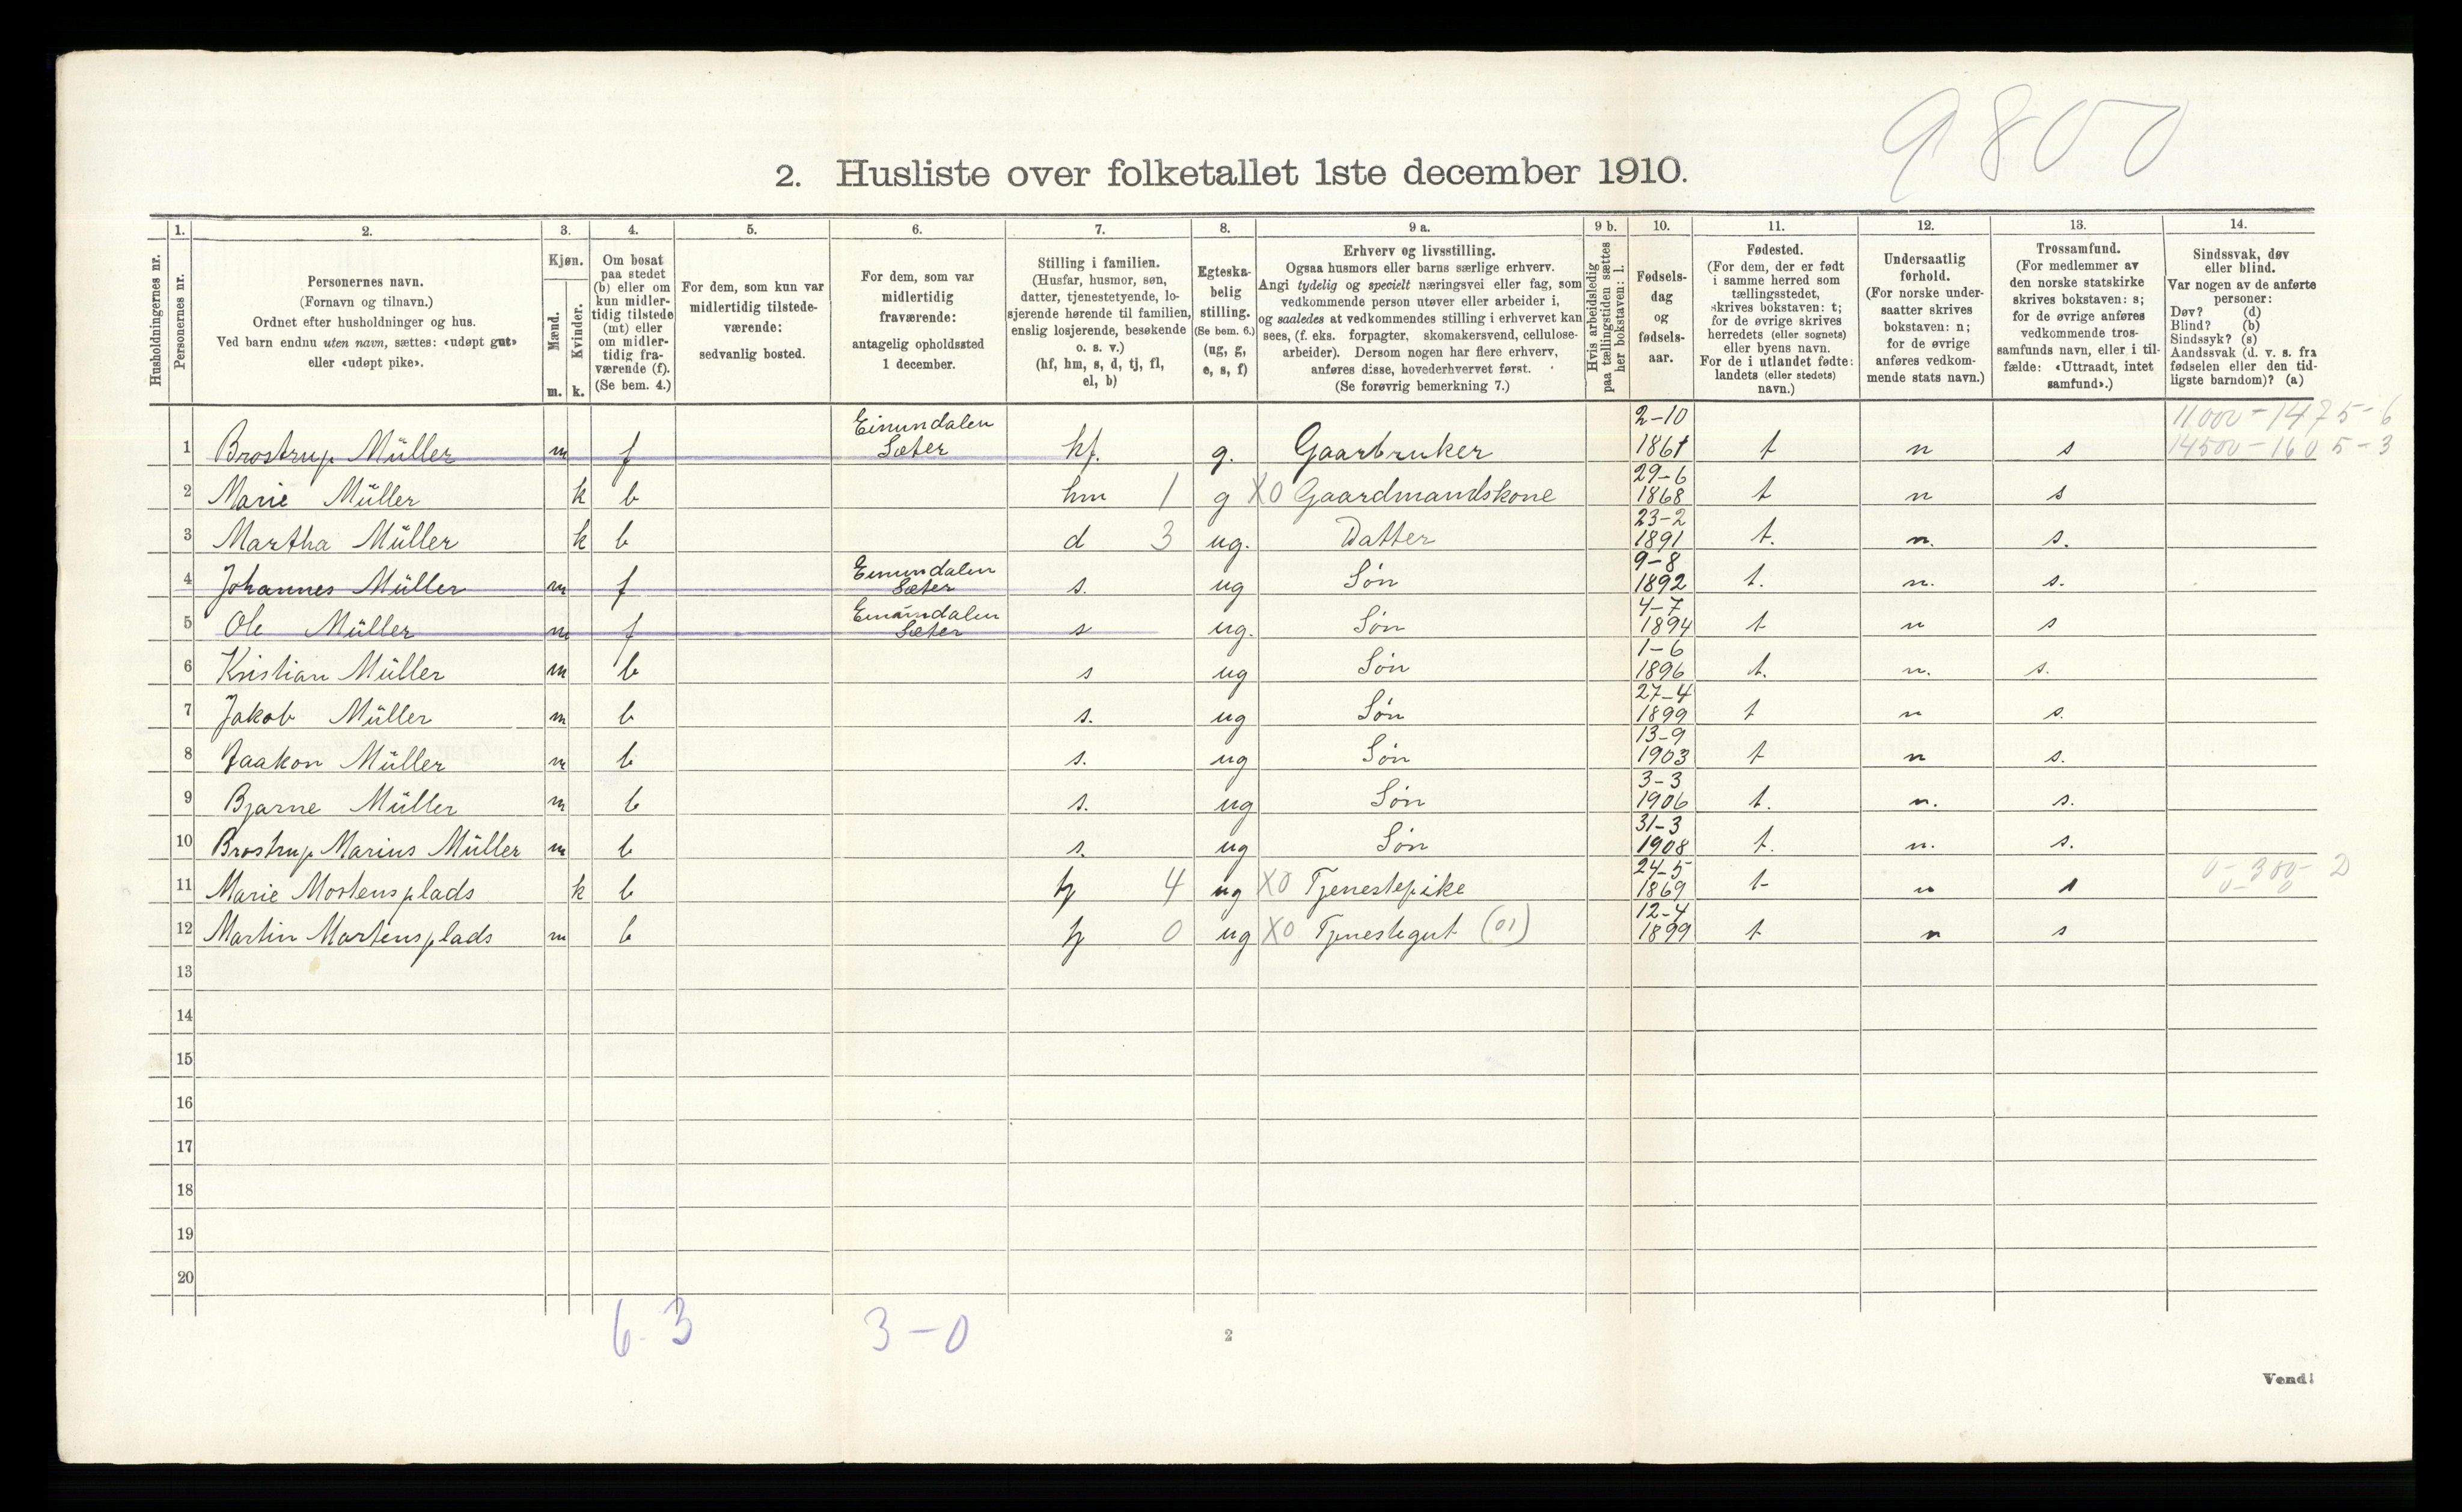 9800
2. Husliste over folketallet 1ste december 1910.
Husholdningernes nr.
1. Personernes nr.
2. Personernes navn.
(Fornavn og tilnavn.)
Ordnet efter husholdninger og hus.
Ved barn endnu uten navn, sættes: «udøpt gut»
eller «udøpt pike».
3. Kjøn.
Mænd. m.
Kvinder. k.
4. Om bosat
paa stedet
(b) eller om
kun midler-
tidig tilstede
(mt) eller
om midler-
tidig fra-
værende (f).
(Se bem. 4.)
5. For dem, som kun var
midlertidig tilstede-
værende:
sedvanlig bosted.
6. For dem, som var
midlertidig
fraværende:
antagelig opholdssted
1 december.
7. Stilling i familien.
(Husfar, husmor, søn,
datter, tjenestetyende, lo-
sjerende hørende til familien,
enslig losjerende, besøkende
o. s. v.)
(hf, hm, s, d, tj, fl,
el, b)
8. Egteska-
belig
stilling.
(Se bem. 6.)
(ug, g,
e, s, f)
9 a. Erhverv og livsstilling.
Ogsaa husmors eller barns særlige erhverv.
Angi tydelig og specielt næringsvei eller fag, som
vedkommende person utøver eller arbeider i,
og saaledes at vedkommendes stilling i erhvervet kan
sees, (f. eks. forpagter, skomakersvend, cellulose-
arbeider). Dersom nogen har flere erhverv,
anføres disse, hovederhvervet først.
(Se forøvrig bemerkning 7.)
9 b. Hvis arbeidsledig
paa tællingstiden sættes
her bokstaven: l.
10. Fødsels-
dag
og
fødsels-
aar.
11. Fødested.
(For dem, der er født
i samme herred som
tællingsstedet,
skrives bokstaven: t;
for de øvrige skrives
herredets (eller sognets)
eller byens navn.
For de i utlandet fødte:
landets (eller stedets)
navn.)
12. Undersaatlig
forhold.
(For norske under-
saatter skrives
bokstaven: n;
for de øvrige
anføres vedkom-
mende stats navn.)
13. Trossamfund.
(For medlemmer av
den norske statskirke
skrives bokstaven: s;
for de øvrige anføres
vedkommende tros-
samfunds navn, eller i til-
fælde: «Uttraadt, intet
samfund».)
14. Sindssvak, døv
eller blind.
Var nogen av de anførte
personer:
Døv? (d)
Blind? (b)
Sindssyk? (s)
Aandssvak (d. v. s. fra
fødselen eller den tid-
ligste barndom)? (a)
11000-1475-6
14500-1605-3
1 Brostrup Müller m f Einundalen Sæter hf. g. Gaarbruker 2-10 1861 t n s
2 Marie Müller k b hm 1 g X0 Gaardmandskone 29-6 1868 t n s
3 Martha Müller k b d 3 ug. Datter 23-2 1891 t. n. s.
4 Johannes Müller m f Einundalen Sæter s. ug Søn 9-8 1892 t. n. s.
5 Ole Müller m f Einundalen Sæter s ug. Søn 4-7 1894 t n s
6 Kristian Müller m b s ug Søn 1-6 1896 t. n. s.
7 Jakob Müller m b s. ug Søn 27-4 1899 t n s.
8 Haakon Müller m b s. ug Søn 13-9 1903 t n s.
9 Bjarne Müller m b s. ug Søn 3-3 1906 t. n. s.
10 Brostrup Marius Müller m b s. ug Søn 31-3 1908 t. n. s.
11 Marie Mortensplads k b tj 4 ug X0 Tjenestepike 24-5 1869 t n s 0-300- 2
12 Martin Martensplads m b tj 0 ug X0 Tjenestegut (01) 12-4 1899 t n s
13
14
15
16
17
18
19
20
6-3 3-0
2
Vend!